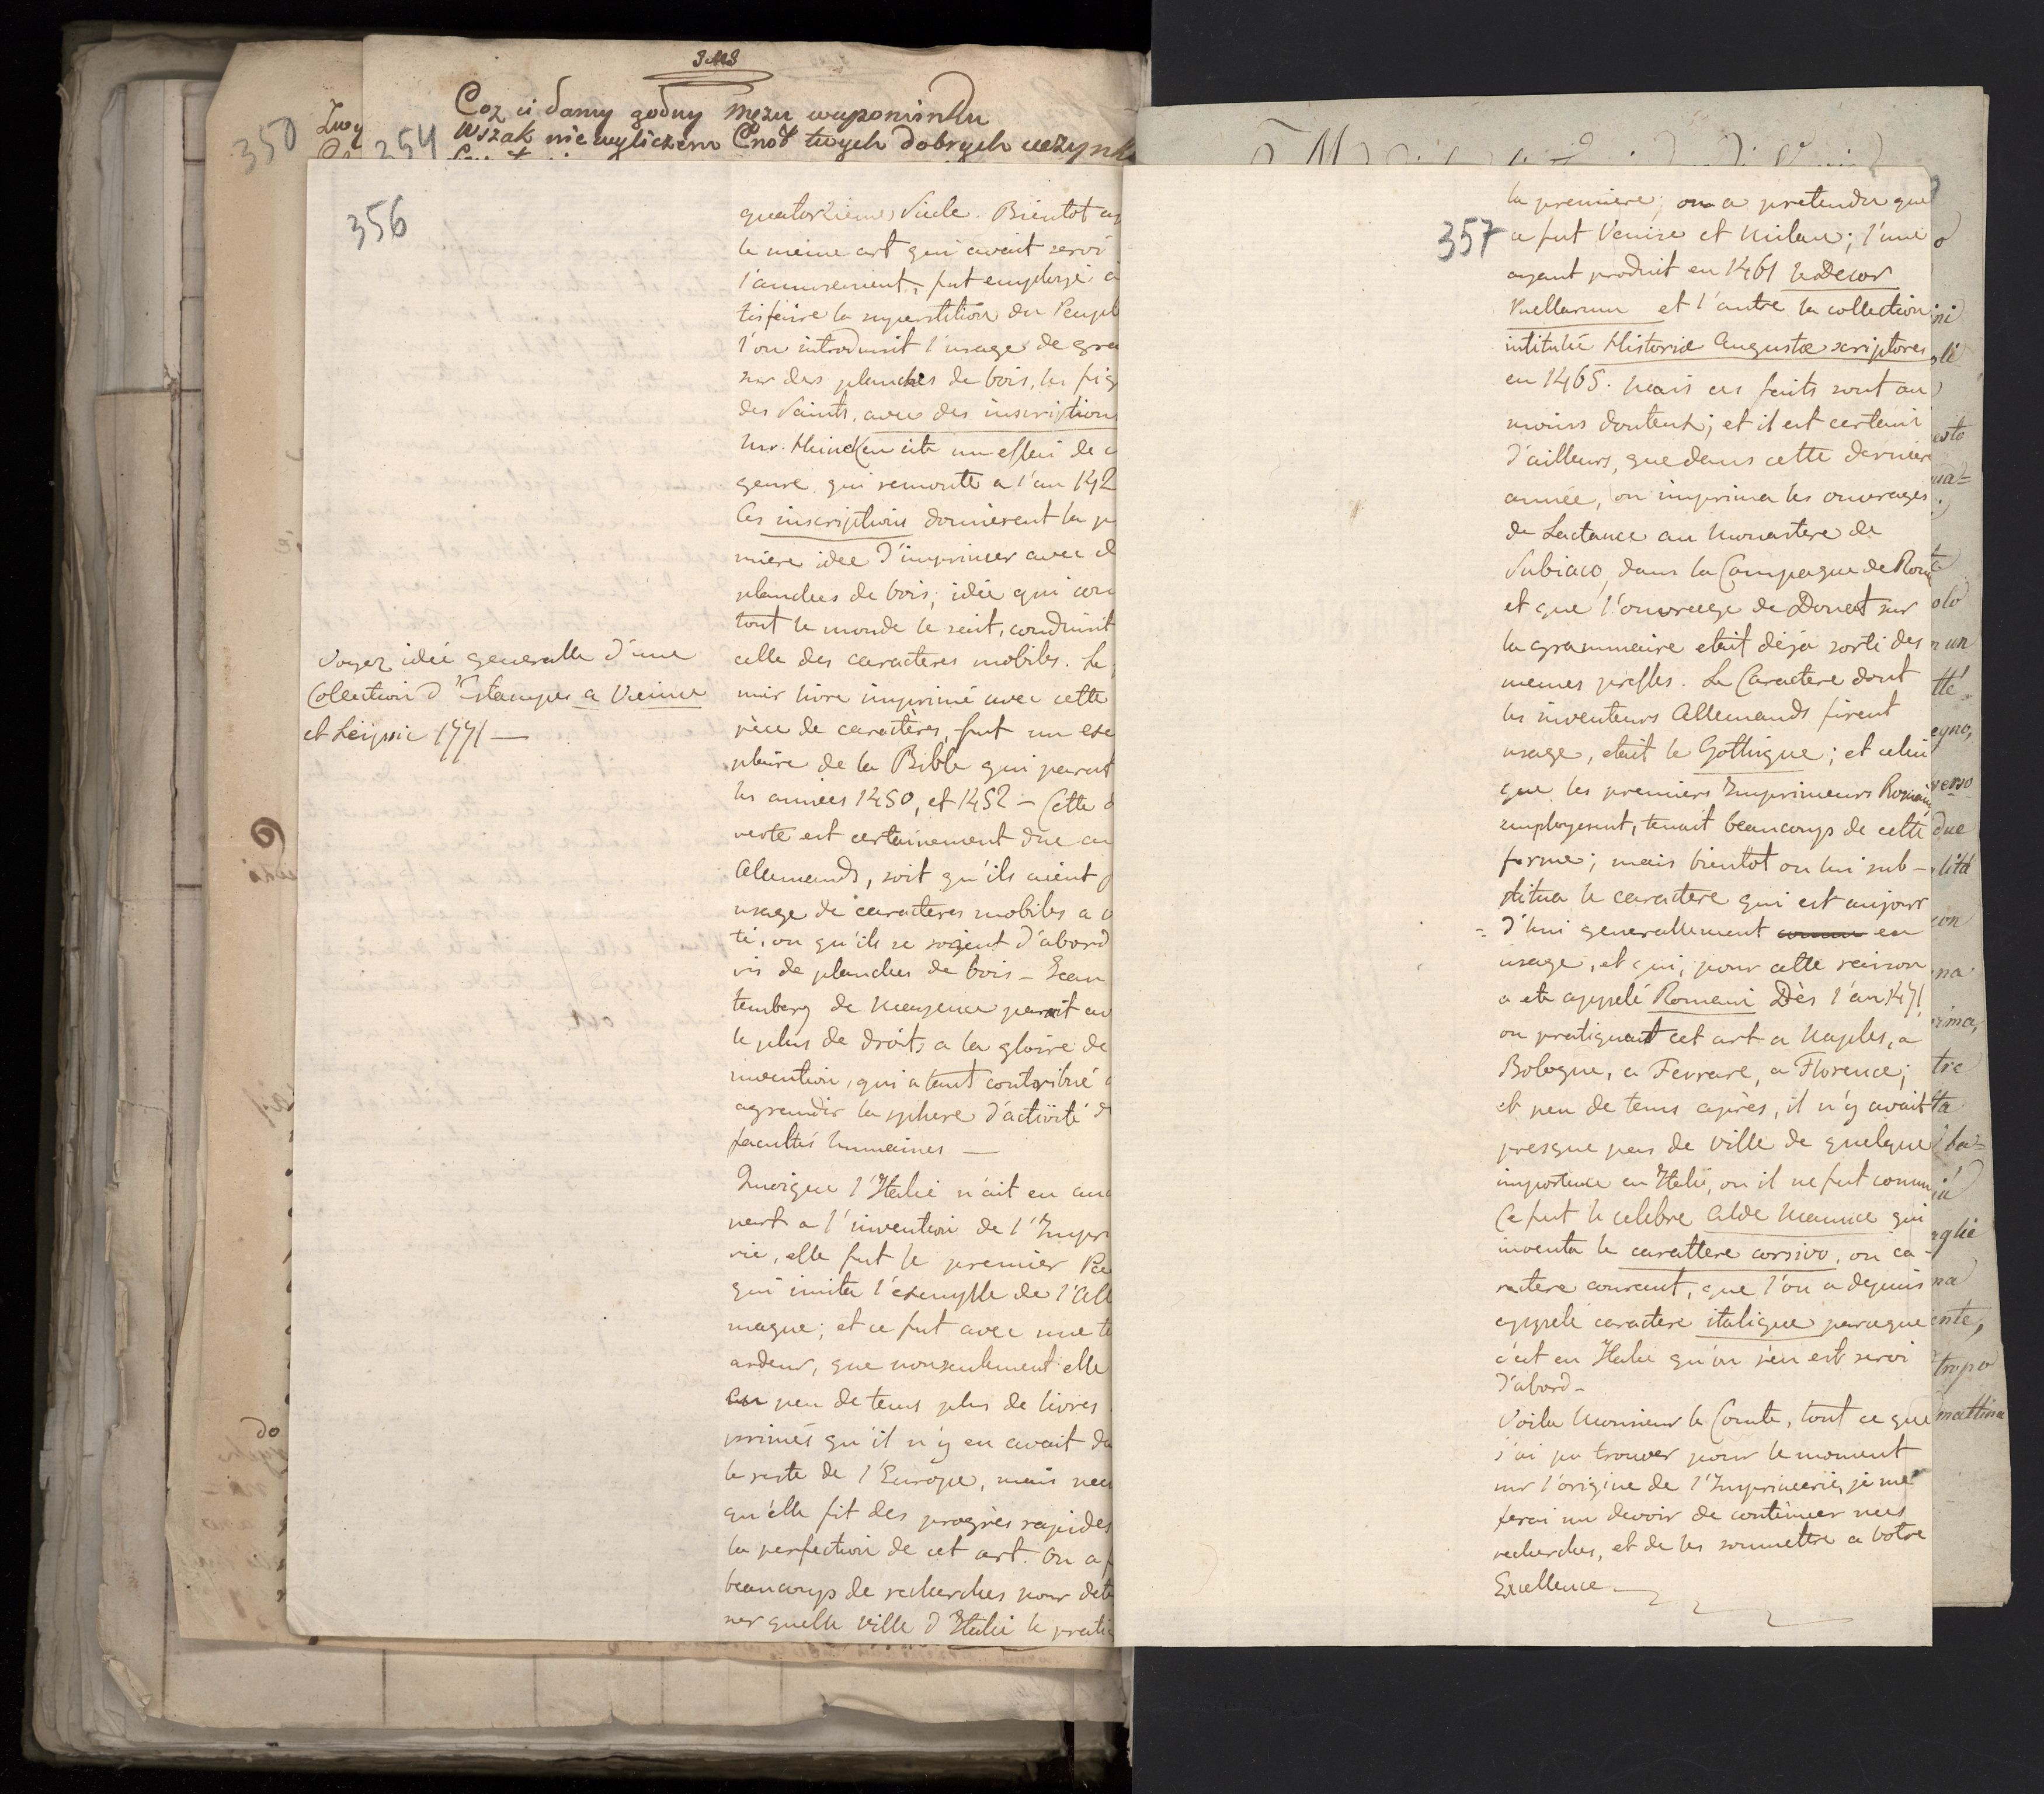 350
354
Coz ci damy godny mężu wuponinku
Wszak nie wyliczem Cnót twych dobrych uczynk
356
quatorzieme Siecle. Bientot ap
le meme art qui avait servi
l'amusement, fut employé a
tisfaire la superstition du Peupl
l'on introduisit l'usage de gra
sur des planches de bois, les fig
des Saints, avec des inscriptions
Mr. Heinecken cite un essai de c
genre, qui remonte a l'an 142
Ces inscriptions donnerent la p
miere idee d'imprimer avec d
planches de bois, idée qui com
tout le monde le sait, conduisit
celle des caracteres mobiles. Le
mier livre imprimé avec cette
pèce de caractères, fut un exe
plaire de la Bible qui parut
les années 1450, et 1452 – Cette d
verte est certainement due au
Allemands, soit qu'ils aient f
usage de caracteres mobiles a c
té, ou qu'ils se soyent d'abord
vis de planches de bois – Jean
temberg de Mayence parait av
le plus de droits a la gloire de
invention, qui a tant contribué a
agrandir la sphere d'activité d
facultés humaines —
Quoique l'Italie n'ait eu auc
part a l'invention de l'Impri
rie, elle fut le premier Pa
qui imita l'exemple de l'All
magne; et ce fut avec une te
ardeur, que nonseulement elle
en peu de tems plus de livres
primés qu'il n'y en avait da
le reste de l'Europe, mais neu
qu'elle fit des progrès rapides
la perfection de cet art. On a f
beaucoups de recherches pour dete
ner quelle ville d'Italie le prati
Voyez idée generalle d'une
Colection d'Estampes a Vienne
et Leipsic 1771 —
357
la premiere; on a pretendu que
ce fut Venise et Milan; l'une
ayant produit en 1461 le Decor
Puellarum et l'autre la collection
intitulée Historiæ Augustæ scriptores
en 1465. Mais ces faits sont au
moins douteux; et il est certain
d'ailleurs, que dans cette derniere
année, on imprima les ouvrages
de Lactance au Monastere de
Subiaco, dans la Campagne de Rome
et que l'ouvrage de Donat sur
la grammaire etait déja sorti des
memes presses. Le Caractere dont
les inventeurs Allemands firent
usage, etait le Gothique; et celui
que les premiers Imprimeurs Romains
employerent, tenait beaucoups de cette
forme; mais bientot on lui sub-
stitua le caractere qui est aujour
= d'hui generallement en
usage, et qui, pour cette raison
a eté appelé Romain Dès l'an 1471
on pratiquait cet art a Naples, a
Bologne, a Ferrare, a Florence;
et peu de tems après, il n'y avait
presque pas de ville de quelque
importance en Italie, ou il ne fut connu
Ce fut le celebre Alde Manuce qui
inventa le carattere corsivo, ou ca-
ractere courant, que l'on a depuis
appelé caractere italique parceque
c'est en Italie qu'on s'en est servi
d'abord –
Voila Monsieur le Comte, tout ce que
j'ai pu trouver pour le moment
sur l'origine de l'Imprimerie, je me
ferai un devoir de continuer mes
recherches, et de les soumettre a Votre
Excellence
esto
olo
n un
egno,
verso
due
con
na
tre
ta
aglie
na
ente,
tropo
mattina